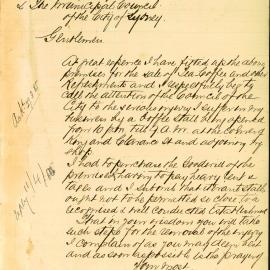 To The Municipal Council
of the City of Sydney.
Gentlemen
At great expence I have fitted up the above
premises for the sale of Tea Coffee and other
Refreshments and I respectfully beg to
call the attention of the Council of the
City to the serious injury I suffer in my
business by a Coffee Stall being opened
from 10 pm till 7 A.M. at the corner of
King and Clarence St and adjoining my
shop.
I had to purchase the Goodwill of the
premises having to pay heavy rent &
taxes and I submit that itinerant stalls
ought not to be permitted so close to a
recognised & well conducted establishment
That in your wisdom you will take
such steps for the removal of the injury
I complain of as you may deem best
and as soon as possible is the prayer of